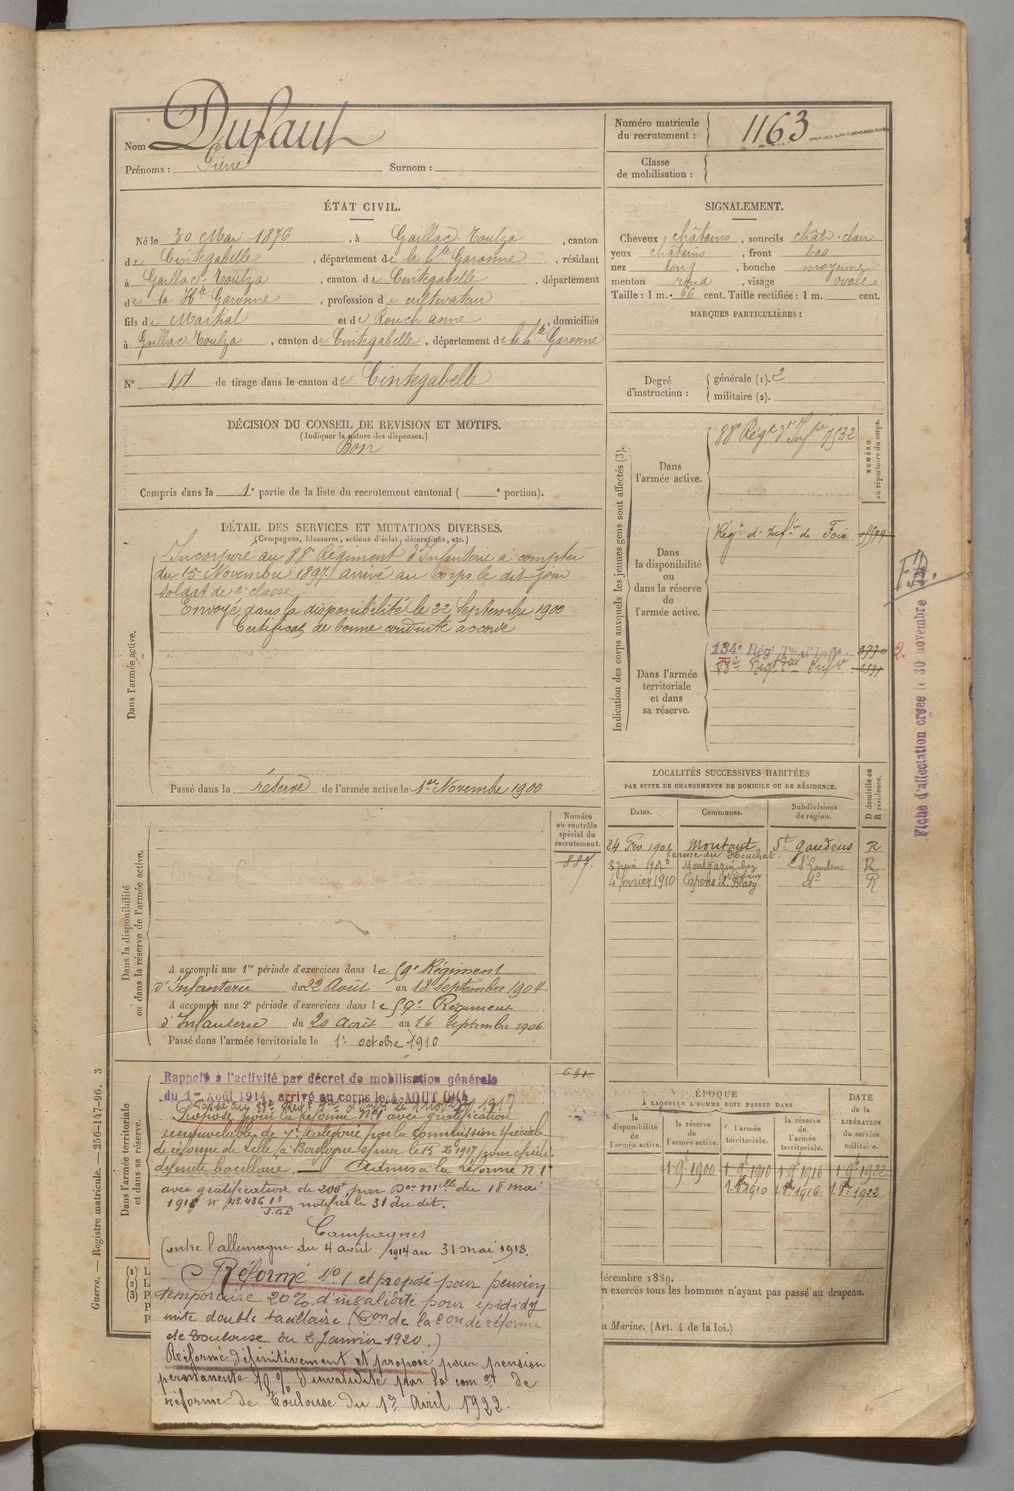 Nom Dufaut
Prénoms : Pierre Surnom :
Numéro matricule du recrutement : 1163
Classe de mobilisation :
ÉTAT CIVIL.
Né le 30 Mai 1876, à Gaillac-Toulza, canton
de Cintegabelle, département de la hte Garonne, résidant
à Gaillac-Toulza, canton de Cintegabelle, département
de la Hte Garonne, profession de cultivateur
fils de Martial et de Rouch anne, domiciliés
à Gaillac-Toulza, canton de Cintegabelle, département de la hte Garonne
N° 14 de tirage dans le canton de Cintegabelle
SIGNALEMENT.
Cheveux châtains, sourcils chât-clair
yeux châtains, front bas
nez long, bouche moyenne
menton rond, visage ovale
Taille : 1 m. 66 cent. Taille rectifiée : 1 m. cent.
MARQUES PARTICULIÈRES :
Degré d'instruction : générale (1). 2
militaire (2).
DÉCISION DU CONSEIL DE REVISION ET MOTIFS.
(Indiquer la nature des dispenses.)
Bon
Compris dans la 1e partie de la liste du recrutement cantonal ( e portion).
DÉTAIL DES SERVICES ET MUTATIONS DIVERSES.
(Campagnes, blessures, actions d'éclat, décorations, etc.)
Dans l'armée active.
Incorporé au 88e Régiment d'Infanterie à compter
du 15 Novembre 1897 arrivé au corps le dit jour
soldat de 2e classe
Envoyé dans la disponibilité le 22 Septembre 1900
Certificat de bonne conduite accordé
Passé dans la réserve de l'armée active le 1er Novembre 1900
Indication des corps auxquels les jeunes gens sont affectés (3).
NUMÉRO au répertoire du corps.
Dans l'armée active.
88e Régt d'Infie 7532
Dans la disponibilité ou dans la réserve de l'armée active.
Régt d'Infie de Foix
Dans l'armée territoriale et dans sa réserve.
134e Régt Tal d'Infie
2
F.D.
Fiche d'affectation créée le 30 novembre
LOCALITÉS SUCCESSIVES HABITÉES
PAR SUITE DE CHANGEMENTS DE DOMICILE OU DE RÉSIDENCE.
Dates. Communes. Subdivisions de région. D domicile ou R résidence.
24 Fév. 1904 Montaut St Gaudens R
St Gaudens R
4 février 1910 Capens do R
Dans la disponibilité ou dans la réserve de l'armée active.
Numéro au contrôle spécial du recrutement.
887.
A accompli une 1re période d'exercices dans le 59e Régiment
d'Infanterie du 22 Août au 18 Septembre 1904
A accompli une 2e période d'exercices dans le 59e Régiment
d'Infanterie du 20 Août au 16 Septembre 1906
Passé dans l'armée territoriale le 1er octobre 1910
Dans l'armée territoriale et dans sa réserve.
Rappelé à l'activité par décret de mobilisation générale
du 1er Août 1914, arrivé au corps le 4 AOUT 1914
Proposé pour la réforme n°1 avec gratification
renouvelable de 7e catégorie par la commission spéciale
de réforme de
Admis à la réforme n°1
avec gratification de 200f par Don mlle du 18 mai
1918 n° notifiée le 31 du dit.
Campagnes
Contre l'allemagne du 4 août 1914 au 31 mai 1918.
Réformé No 1 et proposé pour pension
temporaire 20% d'invalidité pour épididy
mite double bacillaire (Con de la Con de réforme
de Toulouse du 8 Janvier 1920.)
Réformé définitivement et proposé pour pension
permanente 40% d'invalidité par la com on de
réforme de Toulouse du 13 Avril 1922.
ÉPOQUE
À LAQUELLE L'HOMME DOIT PASSER DANS
la disponibilité de l'armée active. la réserve de l'armée active. l'armée territoriale. la réserve de l'armée territoriale.
DATE de la LIBÉRATION du service militaire.
1 9b 1900 1 9b 1910 1 9b 1916 1 9b 1922
1 8bre 1910 1 8bre 1916 1 8bre 1922
décembre 1889.
n exercés tous les hommes n'ayant pas passé au drapeau.
a Marine. (Art. 4 de la loi.)
(1) L
(2) L
(3) P
P
P
Guerre. — Registre matricule. — 256-147-96. 3